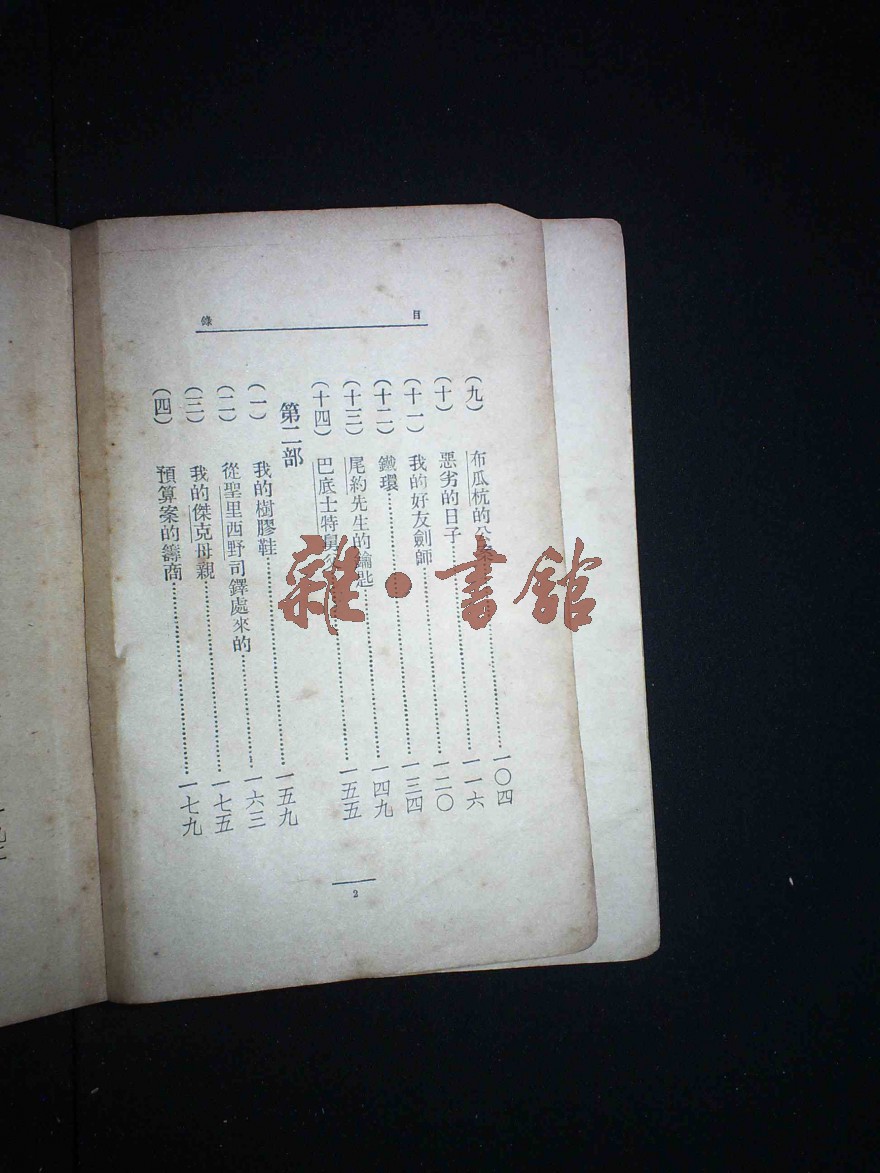 目錄
(九) 布瓜杭的公……一〇四
(十) 惡劣的日子……一一六
(十一) 我的好友劍師……一二〇
(十二) 鐵環……一三四
(十三) 尾約先生的鑰匙……一四九
(十四) 巴底士特舅……一五五
第二部
(一) 我的樹膠鞋……一五九
(二) 從聖里西野司鐸處來的……一六三
(三) 我的傑克母親……一七五
(四) 預算案的籌商……一七九
2
雜·書館